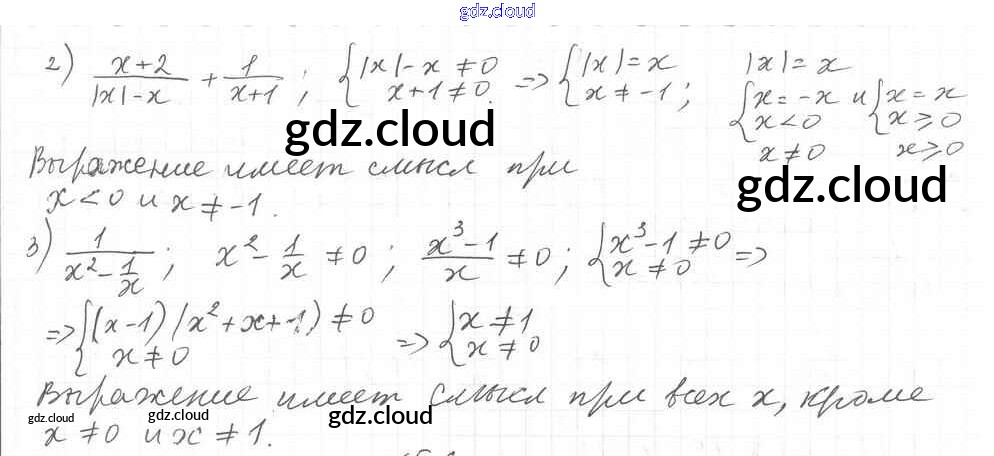 gdz.cloud
2) (x+2)/(|x|-x) + 1/(x+1) ; { |x|-x ≠ 0 ; x+1 ≠ 0. => { |x|=x ; x ≠ -1 ; |x|=x
{ x=-x ; x<0 и { x=x ; x⩾0
x≠0 x⩾0
gdz.cloud
Выражение имеет смысл при
gdz.cloud
x<0 и x≠-1.
3) 1/(x²-1/x) ; x²-1/x ≠ 0 ; (x³-1)/x ≠ 0 ; { x³-1 ≠ 0 ; x ≠ 0 =>
=> { (x-1)(x²+x+1) ≠ 0 ; x ≠ 0 => { x≠1 ; x≠0
Выражение имеет смысл при всех x, кроме
gdz.cloud gdz.cloud gdz.cloud
x≠0 и x≠1.